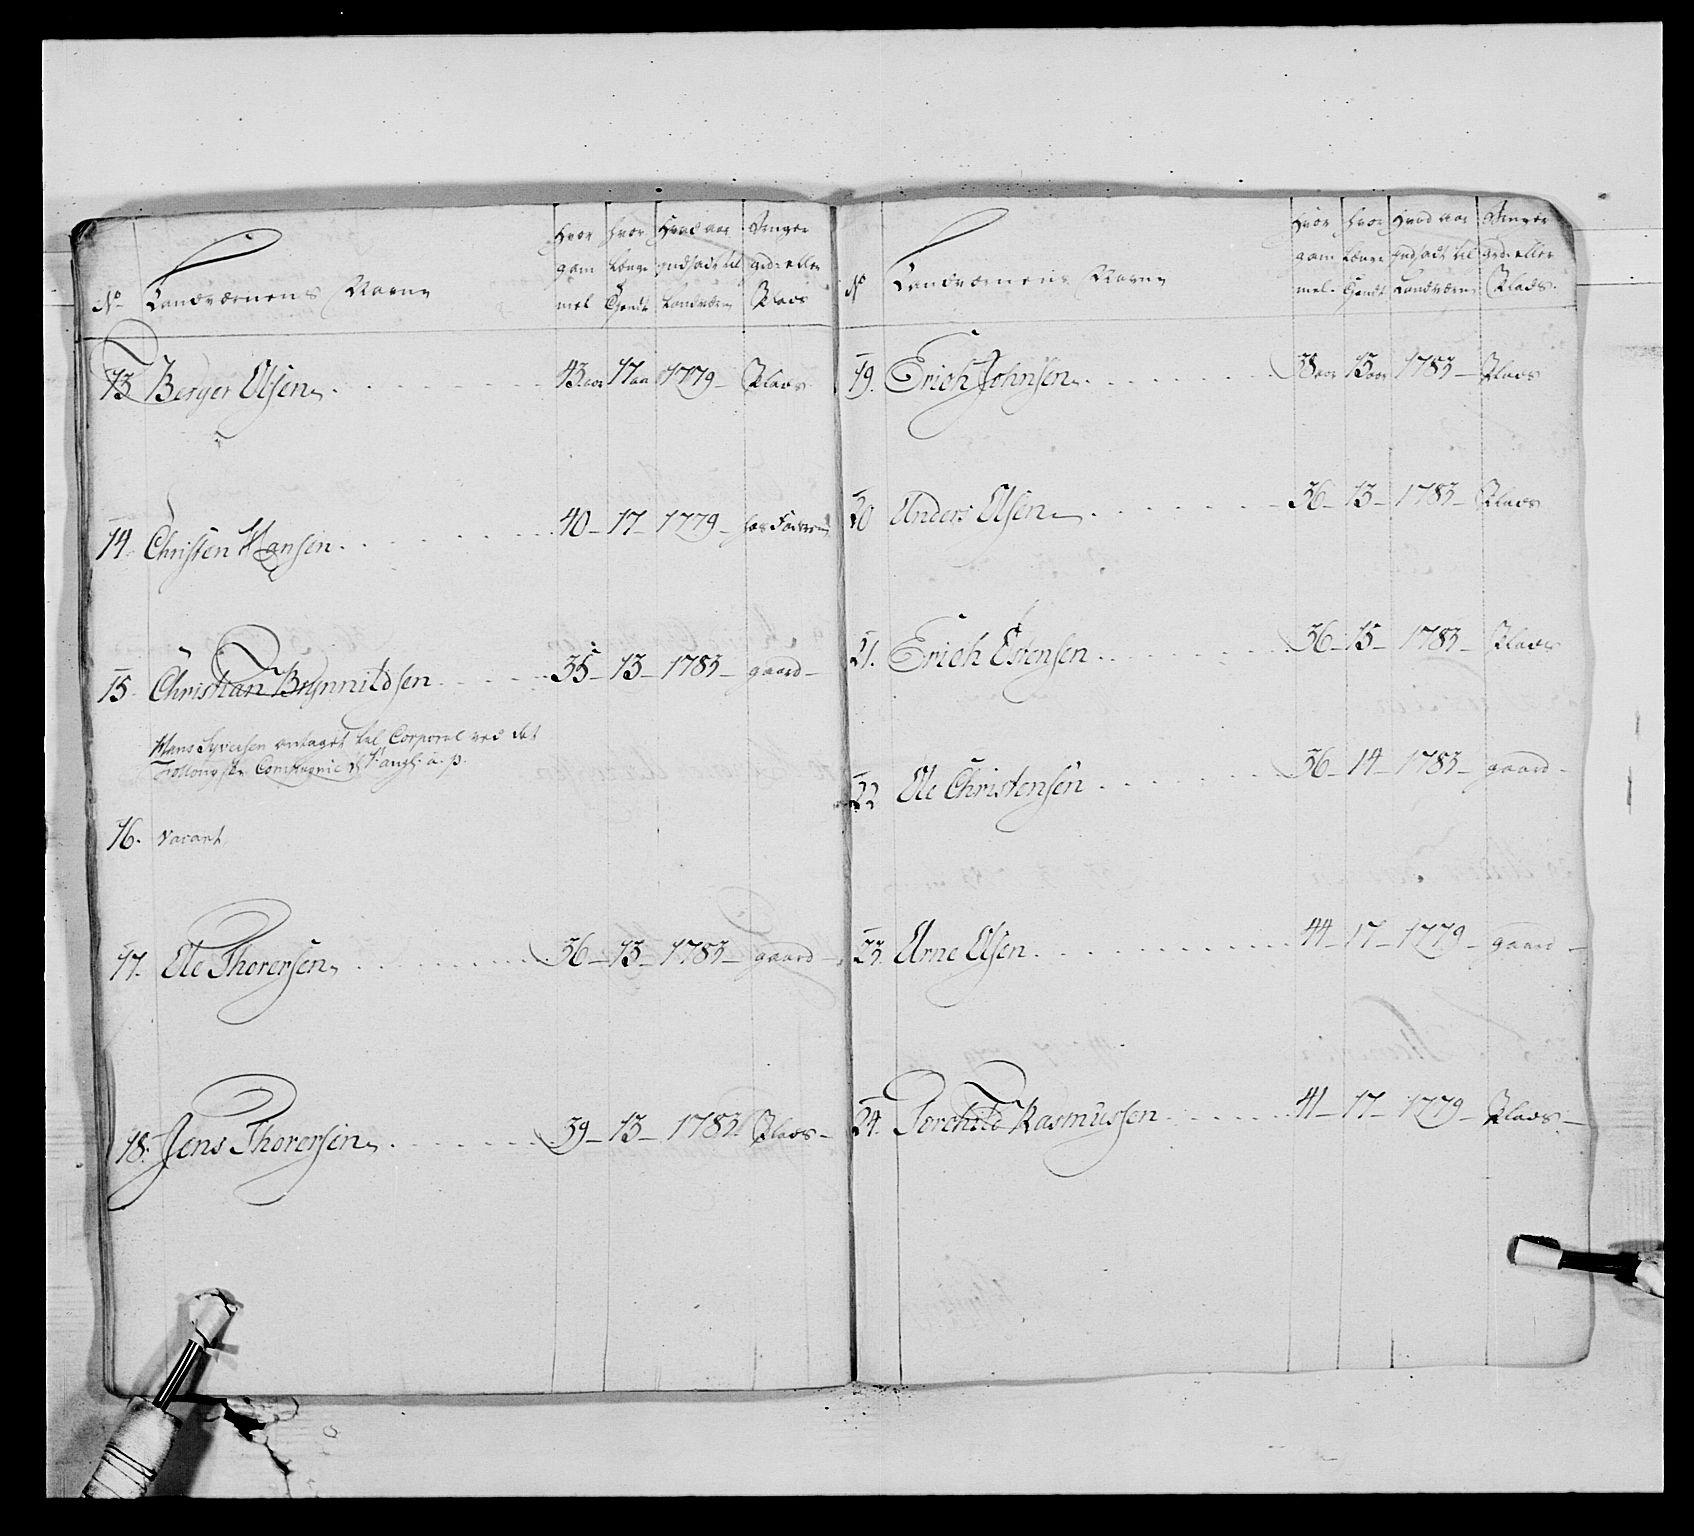 No. Landværnens Navne Hvor gam mel hvor længe tjendt Hvad aar indsadt til Landværn Gaard eller Plads
13 Berger Olsen 43 aar 17 aa 1779 – Plads
14. Christen Hansen 40 – 17 – 1779 –
15. Christian Brynnildsen 35 – 13 – 1783 – gaard –
Hans Syversen antaget til Corporal ved det
Compagnie d. 1 aug: a. p.
16. vacant
17. Ole Thorersen 36 – 13 – 1783 – gaard –
18. Jens Thorersen 39 – 13 – 1783 Plads –
No Landværnens Navne Hvor gam mel. hvor længe tjendt Hvad aar indsadt til Landværn eller Plads.
19. Erich Johnsen 38 aar 13 aar 1783 – Plads
20 Anders Olsen 36 – 13 – 1783 – Plads
21. Erich Estensen 36 – 13 – 1783 – Plads
22 Ole Christensen 36 – 14 – 1783 – gaard –
23. Arne Olsen 44 – 17 – 1779 – gaard –
24. Torchild Rasmussen 41 – 17 – 1779 – Plads –